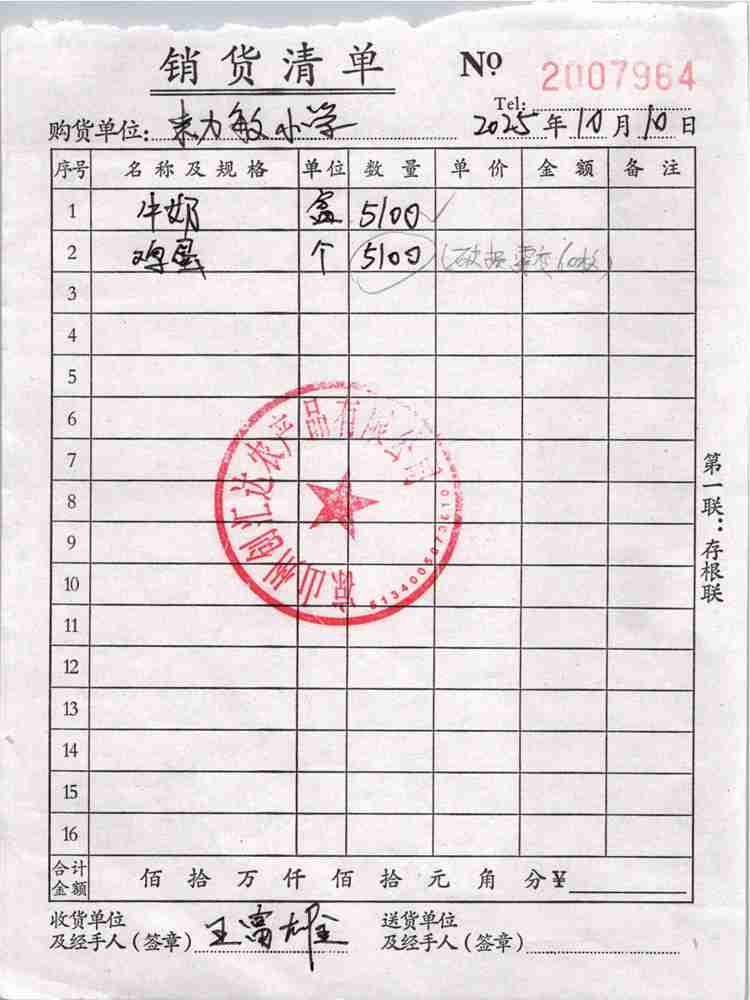 销货清单 Nº 2007964
Tel:
购货单位: 来力敏小学 2025年10月10日
序号 名称及规格 单位 数量 单价 金额 备注
1 牛奶 盒 5100
2 鸡蛋 个 5100 (破损 60枚)
3
4
5
6
7
8
9
10
11
12
13
14
15
16
凉山州创汇达农产品有限公司
5134005073610
第一联：存根联
合计金额 佰 拾 万 仟 佰 拾 元 角 分 ¥
收货单位及经手人(签章) 王富雄
送货单位及经手人(签章)